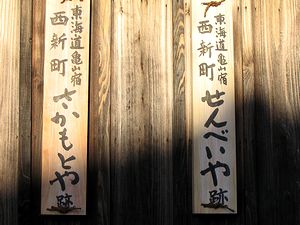 東海道亀山宿
西新町
せんべいや跡
東海道亀山宿
西新町
さかもとや跡